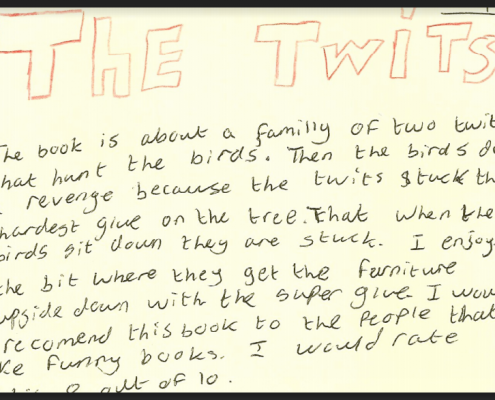 THE TWITS
The book is about a familly of two twit
hat hunt the birds. Then the birds d
revenge because the twits stuck th
hardest glue on the tree. That when the
birds sit down they are stuck. I enjoy
the bit where they get the furniture
upside down with the super glue. I wou
recomend this book to the people that
ke funny books. I would rate
out of 10.